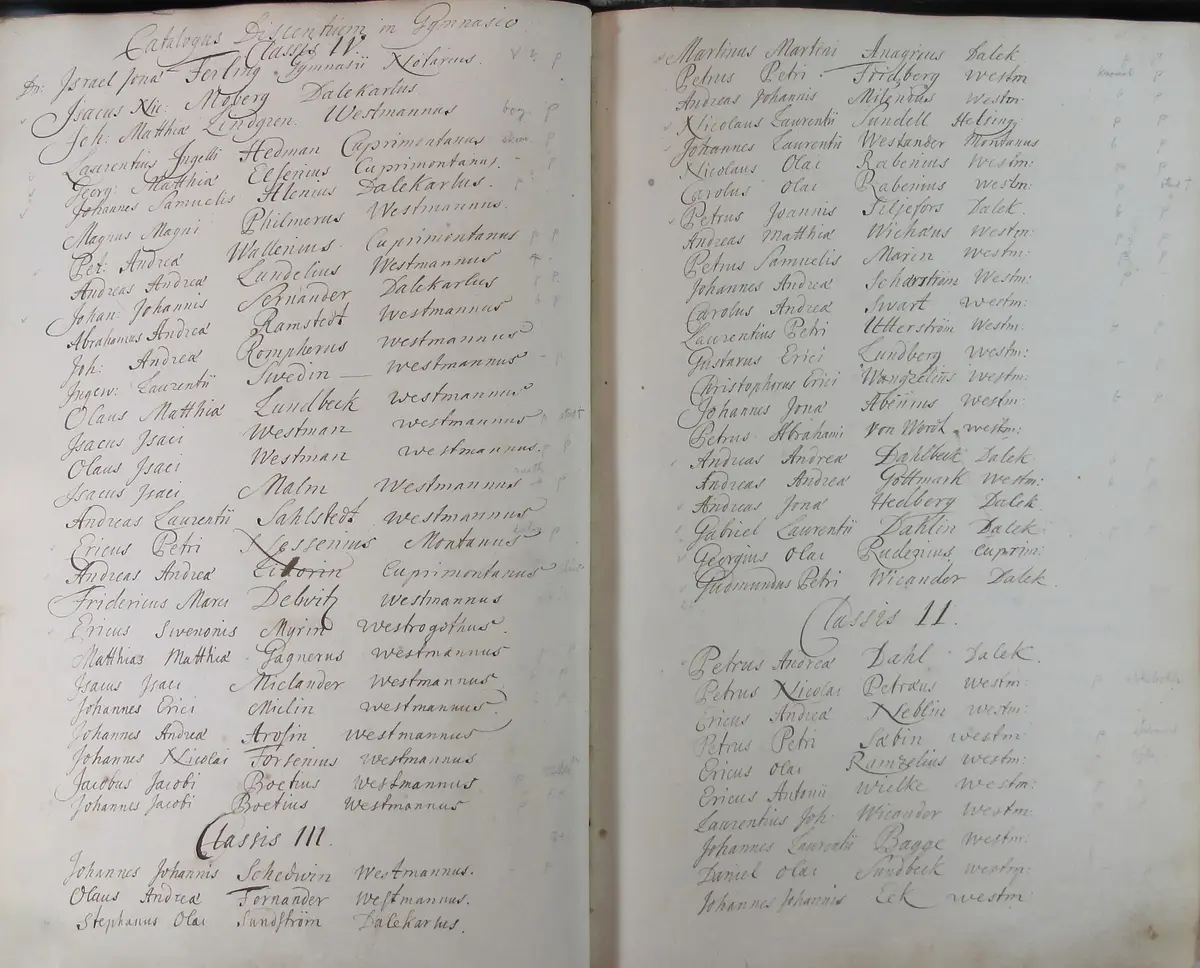 Catalogus Discentium in Gymnasio
Classis IV.
Dn: Israel Jonæ Ferling Gymnasii Notarius.
Isacus Nic: Moberg Dalekarlus
Joh: Matthiæ Lindgren. Westmannus
Laurentius Ingelli Hedman Cuprimontanus
Georg: Matthiæ Elfenius Cuprimontanus.
Johannes Samuelis Alenius Dalekarlus.
Magnus Magni Philmerus Westmannus.
Pet: Andreæ Wallenius Cuprimontanus
Andreas Andreæ Lundelius Westmannus
Johan: Johannis Sernander Dalekarlus
Abrahamus Andreæ Ramstedt Westmannus
Joh: Andreæ Rompherus westmannus
Ingew: Laurentii Swedin — westmannus
Olaus Matthiæ Lundbeck westmannus
Isacus Isaci Westman westmannus
Olaus Isaci Westman westmannus.
Isacus Isaci Malm westmannus
Andreas Laurentii Sahlstedt westmannus
Ericus Petri Nessenius Montanus
Andreas Andreæ Cuprimontanus
Fridericus Marci Delwitz westmannus
Ericus Swenonis Myrin Westrogothus.
Matthias Matthiæ Gagnerus westmannus
Isacus Isaci Mielander westmannus
Johannes Erici Melin westmannus.
Johannes Andreæ Arosin westmannus
Johannes Nicolai Forsenius westmannus
Jacobus Jacobi Boetius Westmannus
Johannes Jacobi Boetius Westmannus
Classis III.
Johannes Johannis Schedwin Westmannus.
Olaus Andreæ Fornander Westmannus.
Stephanus Olai Sundström Dalekarlus.
Martinus Martini Anagrius Dalek
Petrus Petri Fordberg westm
Andreas Johannis Milenius westm:
Nicolaus Laurentii Sundell Helsing:
Johannes Laurentii Westander Montanus
Nicolaus Olai Rabenius westm:
Carolus Olai Rabenius westm:
Petrus Joannis Filjefors Dalek.
Andreas Matthiæ Wichæus westm:
Petrus Samuelis Marin westm:
Johannes Andreæ Schærström Westm:
Carolus Andreæ Swart westm:
Laurentius Petri Utterström Westm:
Gustavus Erici Lundberg westm:
Christophorus Erici Wangelius westm:
Johannes Jonæ Abenius westm:
Petrus Abrahami von Word westm:
Andreas Andreæ Dahlbeck Dalek
Andreas Andreæ Gottmark westm:
Andreas Jonæ Hedberg Dalek
Gabriel Laurentii Dahlin Dalek
Georgius Olai Rudenius Cuprim:
Gudmundus Petri Wicander Dalek.
Classis II.
Petrus Andreæ Dahl Dalek.
Petrus Nicolai Petræus westm:
Ericus Andreæ Neblin westm:
Petrus Petri Sæbin westm
Ericus Olai Ramzelius westm:
Ericus Antonii wielke westm:
Laurentius Joh: Wicander westm:
Johannes Laurentii Bagge westm:
Daniel Olai Sundbeck westm:
Johannes Johannis Eek westm: